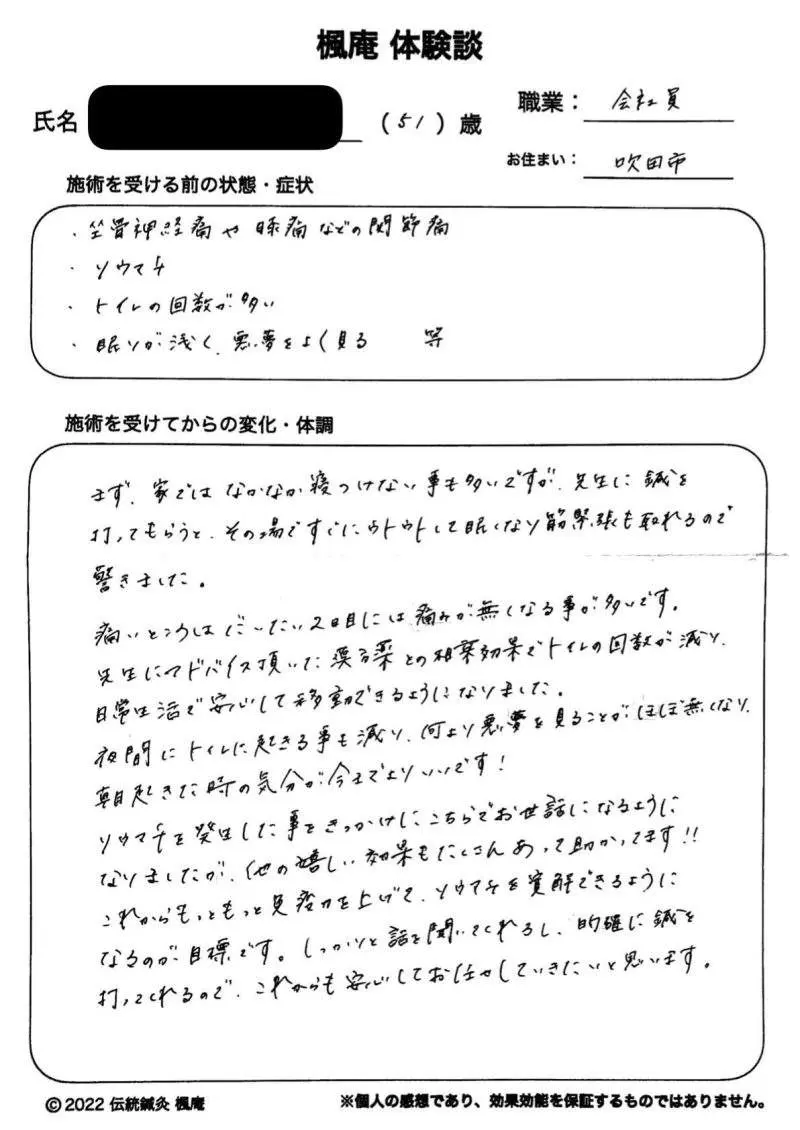 楓庵 体験談
氏名
(51)歳
職業: 会社員
お住まい: 吹田市
施術を受ける前の状態・症状
・坐骨神経痛や膝痛などの関節痛
・リウマチ
・トイレの回数が多い
・眠りが浅く、悪夢をよく見る 等
施術を受けてからの変化・体調
まず、家ではなかなか寝つけない事も多いですが、先生に鍼を
打ってもらうと、その場ですぐにウトウトして眠くなり筋緊張も取れるので
驚きました。
痛いところはだいたい2日目には痛みが無くなる事が多いです。
先生にアドバイス頂いた漢方薬との相乗効果でトイレの回数が減り、
日常生活で安心して移動できるようになりました。
夜間にトイレに起きる事も減り、何より悪夢を見ることがほぼ無くなり、
朝起きた時の気分が今までよりいいです!
リウマチを発症した事をきっかけにこちらでお世話になるように
なりましたが、他の嬉しい効果もたくさんあって助かってます!!
これからもっともっと免疫力を上げて、リウマチを寛解できるように
なるのが目標です。しっかりと話を聞いてくれるし、的確に鍼を
打ってくれるので、これからも安心してお任せしていきたいと思います。
©2022 伝統鍼灸 楓庵
※個人の感想であり、効果効能を保証するものではありません。